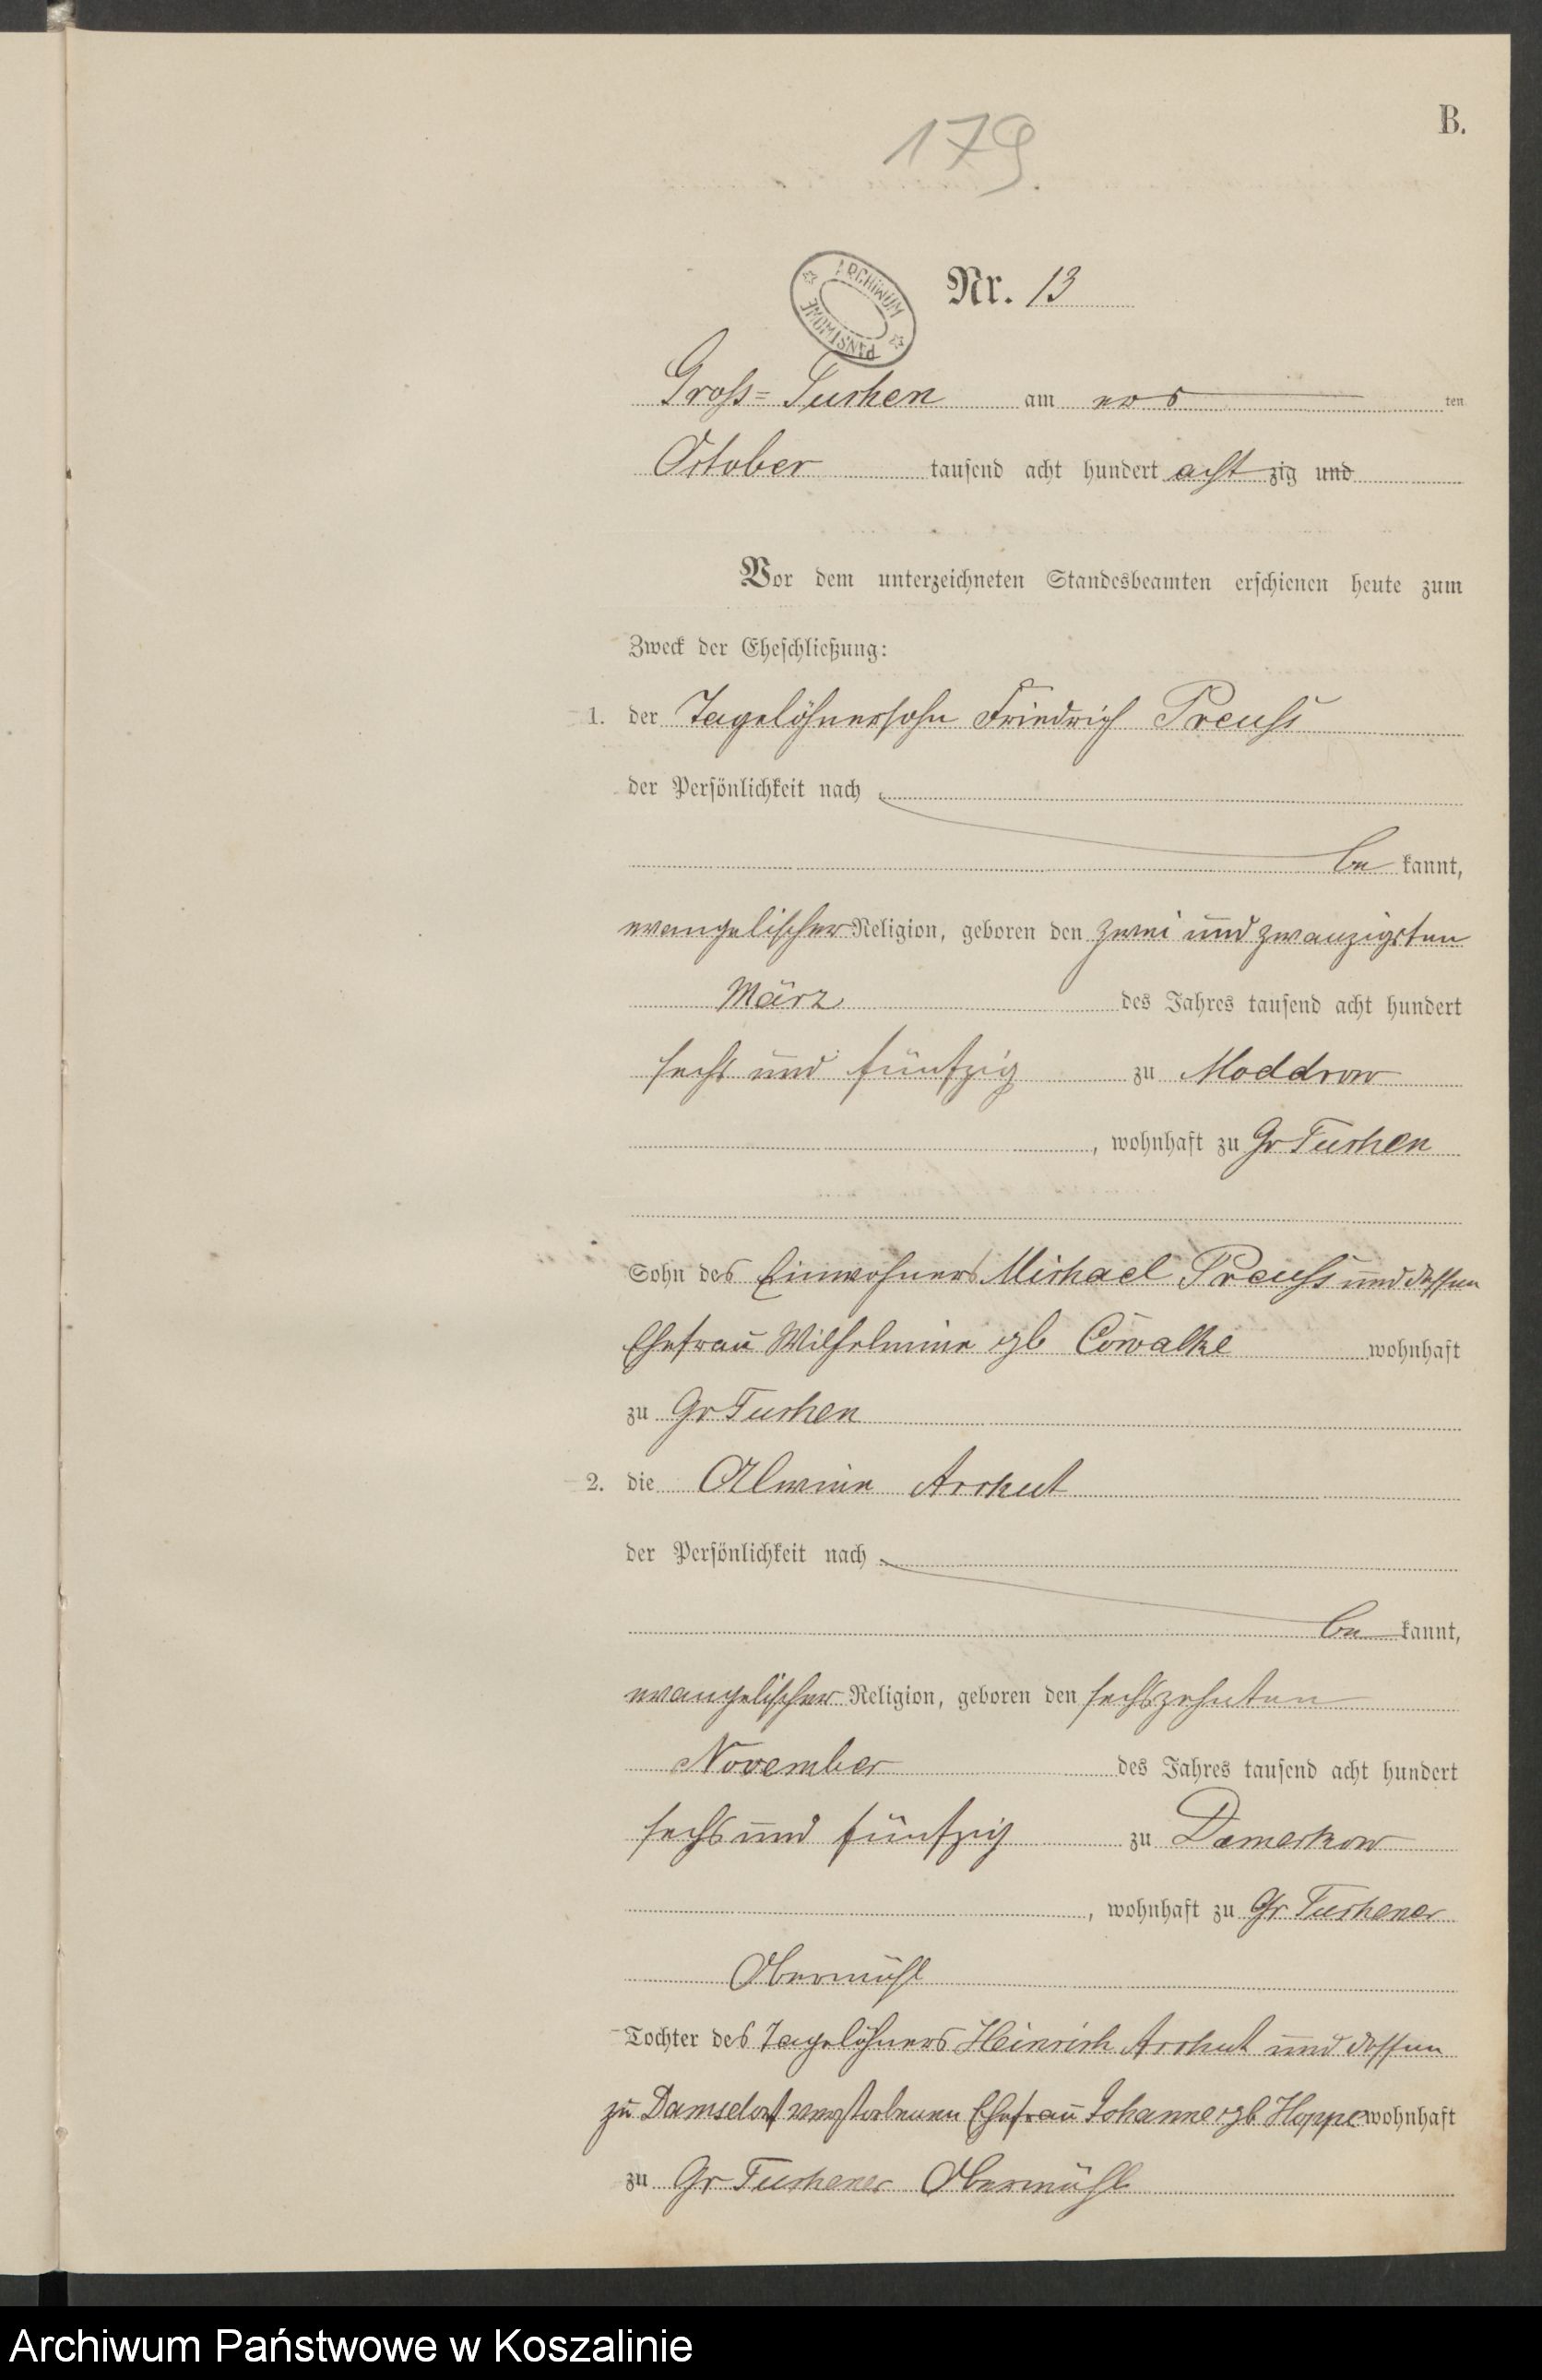 B.
179.
ARCHIWUM PAŃSTWOWE
Nr. 13
Gross-Tuchen am ten
October tausend acht hundert achtzig und
Vor dem unterzeichneten Standesbeamten erschienen heute zum
Zweck der Eheschließung:
1. der Tagelöhnersohn Friedrich Preuss
der Persönlichkeit nach
be kannt,
evangelischer Religion, geboren den zwei und zwanzigsten
März des Jahres tausend acht hundert
sechs und fünfzig zu Moddrow
, wohnhaft zu Gr Tuchen
Sohn des Einwohners Michael Preuss und dessen
Ehefrau Wilhelmine geb Cowalke wohnhaft
zu Gr Tuchen
2. die Alwine Arckut
der Persönlichkeit nach
be kannt,
evangelischer Religion, geboren den sechszehnten
November des Jahres tausend acht hundert
sechs und fünfzig zu Damerkow
, wohnhaft zu Gr Tuchener
Obermühl
Tochter des Tagelöhners Heinrich Arckut und dessen
zu Damsdorf verstorbenen Ehefrau Johanne geb Hoppe wohnhaft
zu Gr Tuchener Obermühl
Archiwum Państwowe w Koszalinie